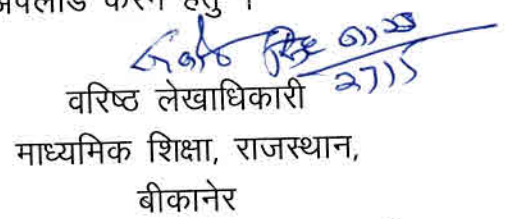 अपलोड करने हेतु ।
वरिष्ठ लेखाधिकारी
माध्यमिक शिक्षा, राजस्थान,
बीकानेर